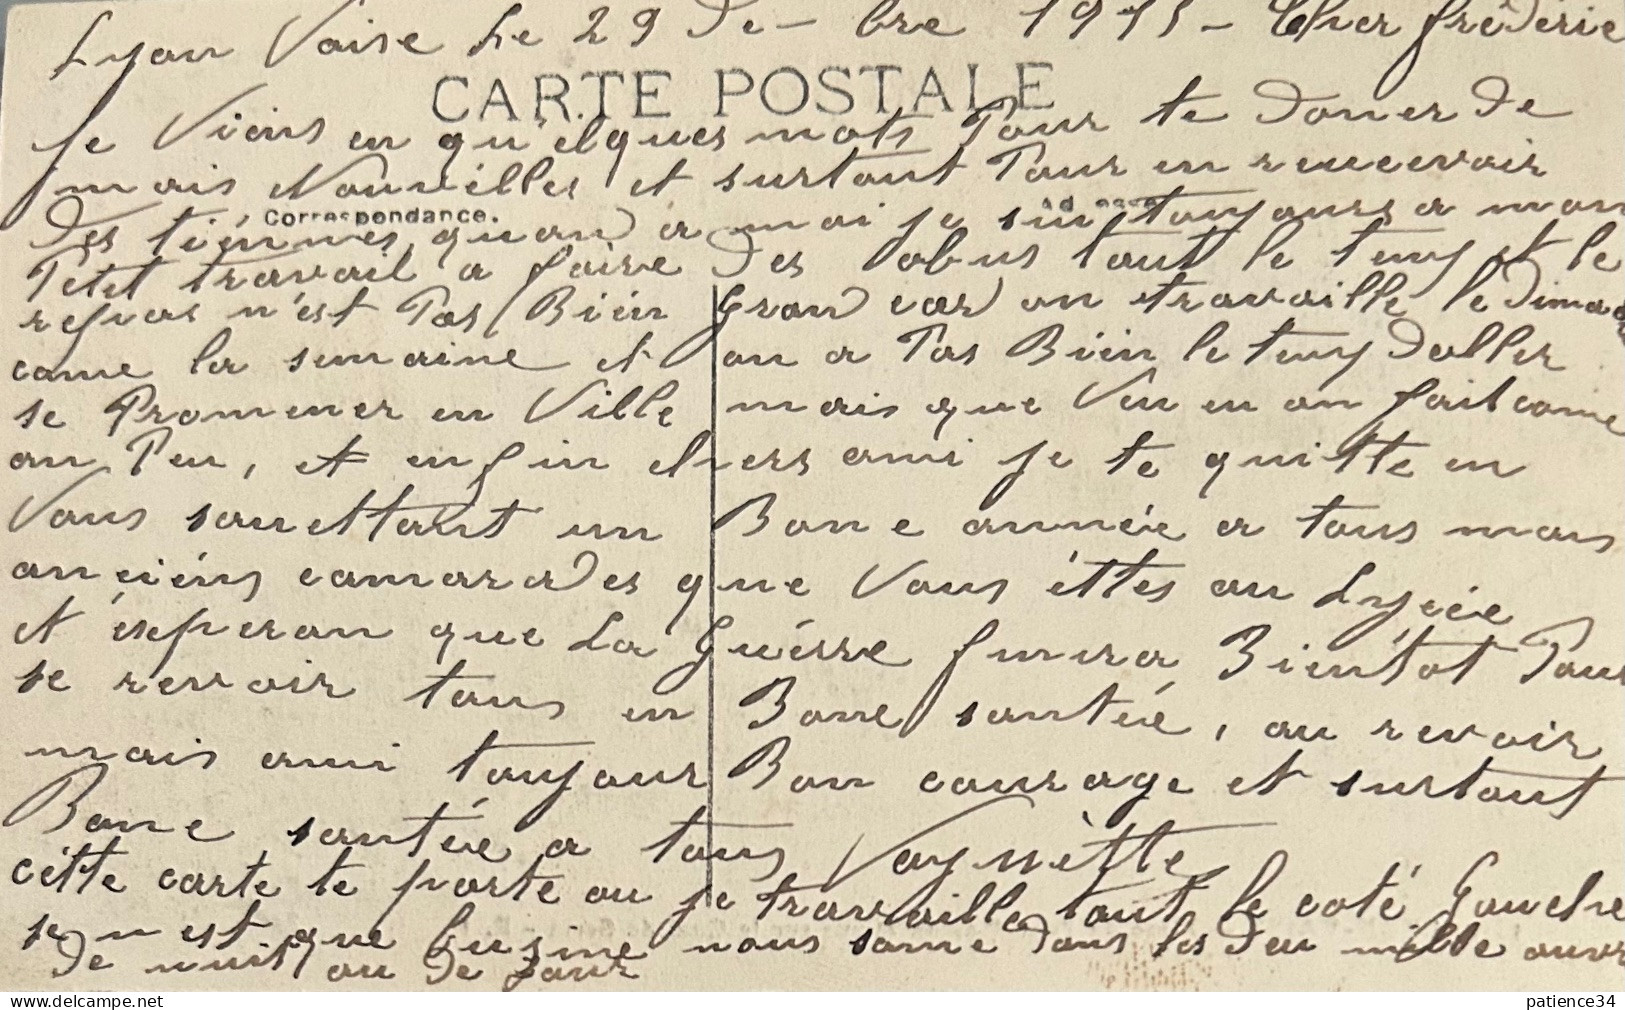 Lyon Vaise Le 29 De - bre 1915 - Cher fréderic
CARTE POSTALE
Je Viens en qu'elques mots Pour te doner de
mais Nouvélles et surtout Pour en reucevoir
Correspondance.
Des tiénnes, quand a moi je sui toujours a mon
Petit travail a faire des obus tout le temp et le
repos n'est Pas Bién Grand car on travaille le Dima
come la semaine et on a Pas Bién le temp daller
se Promener en Ville mais que Veu en on fait come
on Peu, et enfin chers ami je te quitte en
Vous souettant un Bone année a tous mais
anciéns camarades que Vous éttes au Lycée
et ésperon que La Guérre finira Biéntot Pour
se revoir tous en Bone santée, au revoir
mais ami toujour Bon courage et surtout
Bone santée a tous Vaynètte
cétte carte te porte ou je travaille tout le coté Gauche
se n'est que lusine nous some dans les deu mille ouvr
de nuit ou de jour
patience34